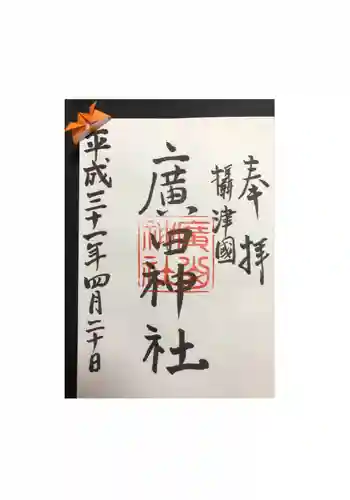 奉拝
攝津國
廣田神社
平成三十一年四月二十日